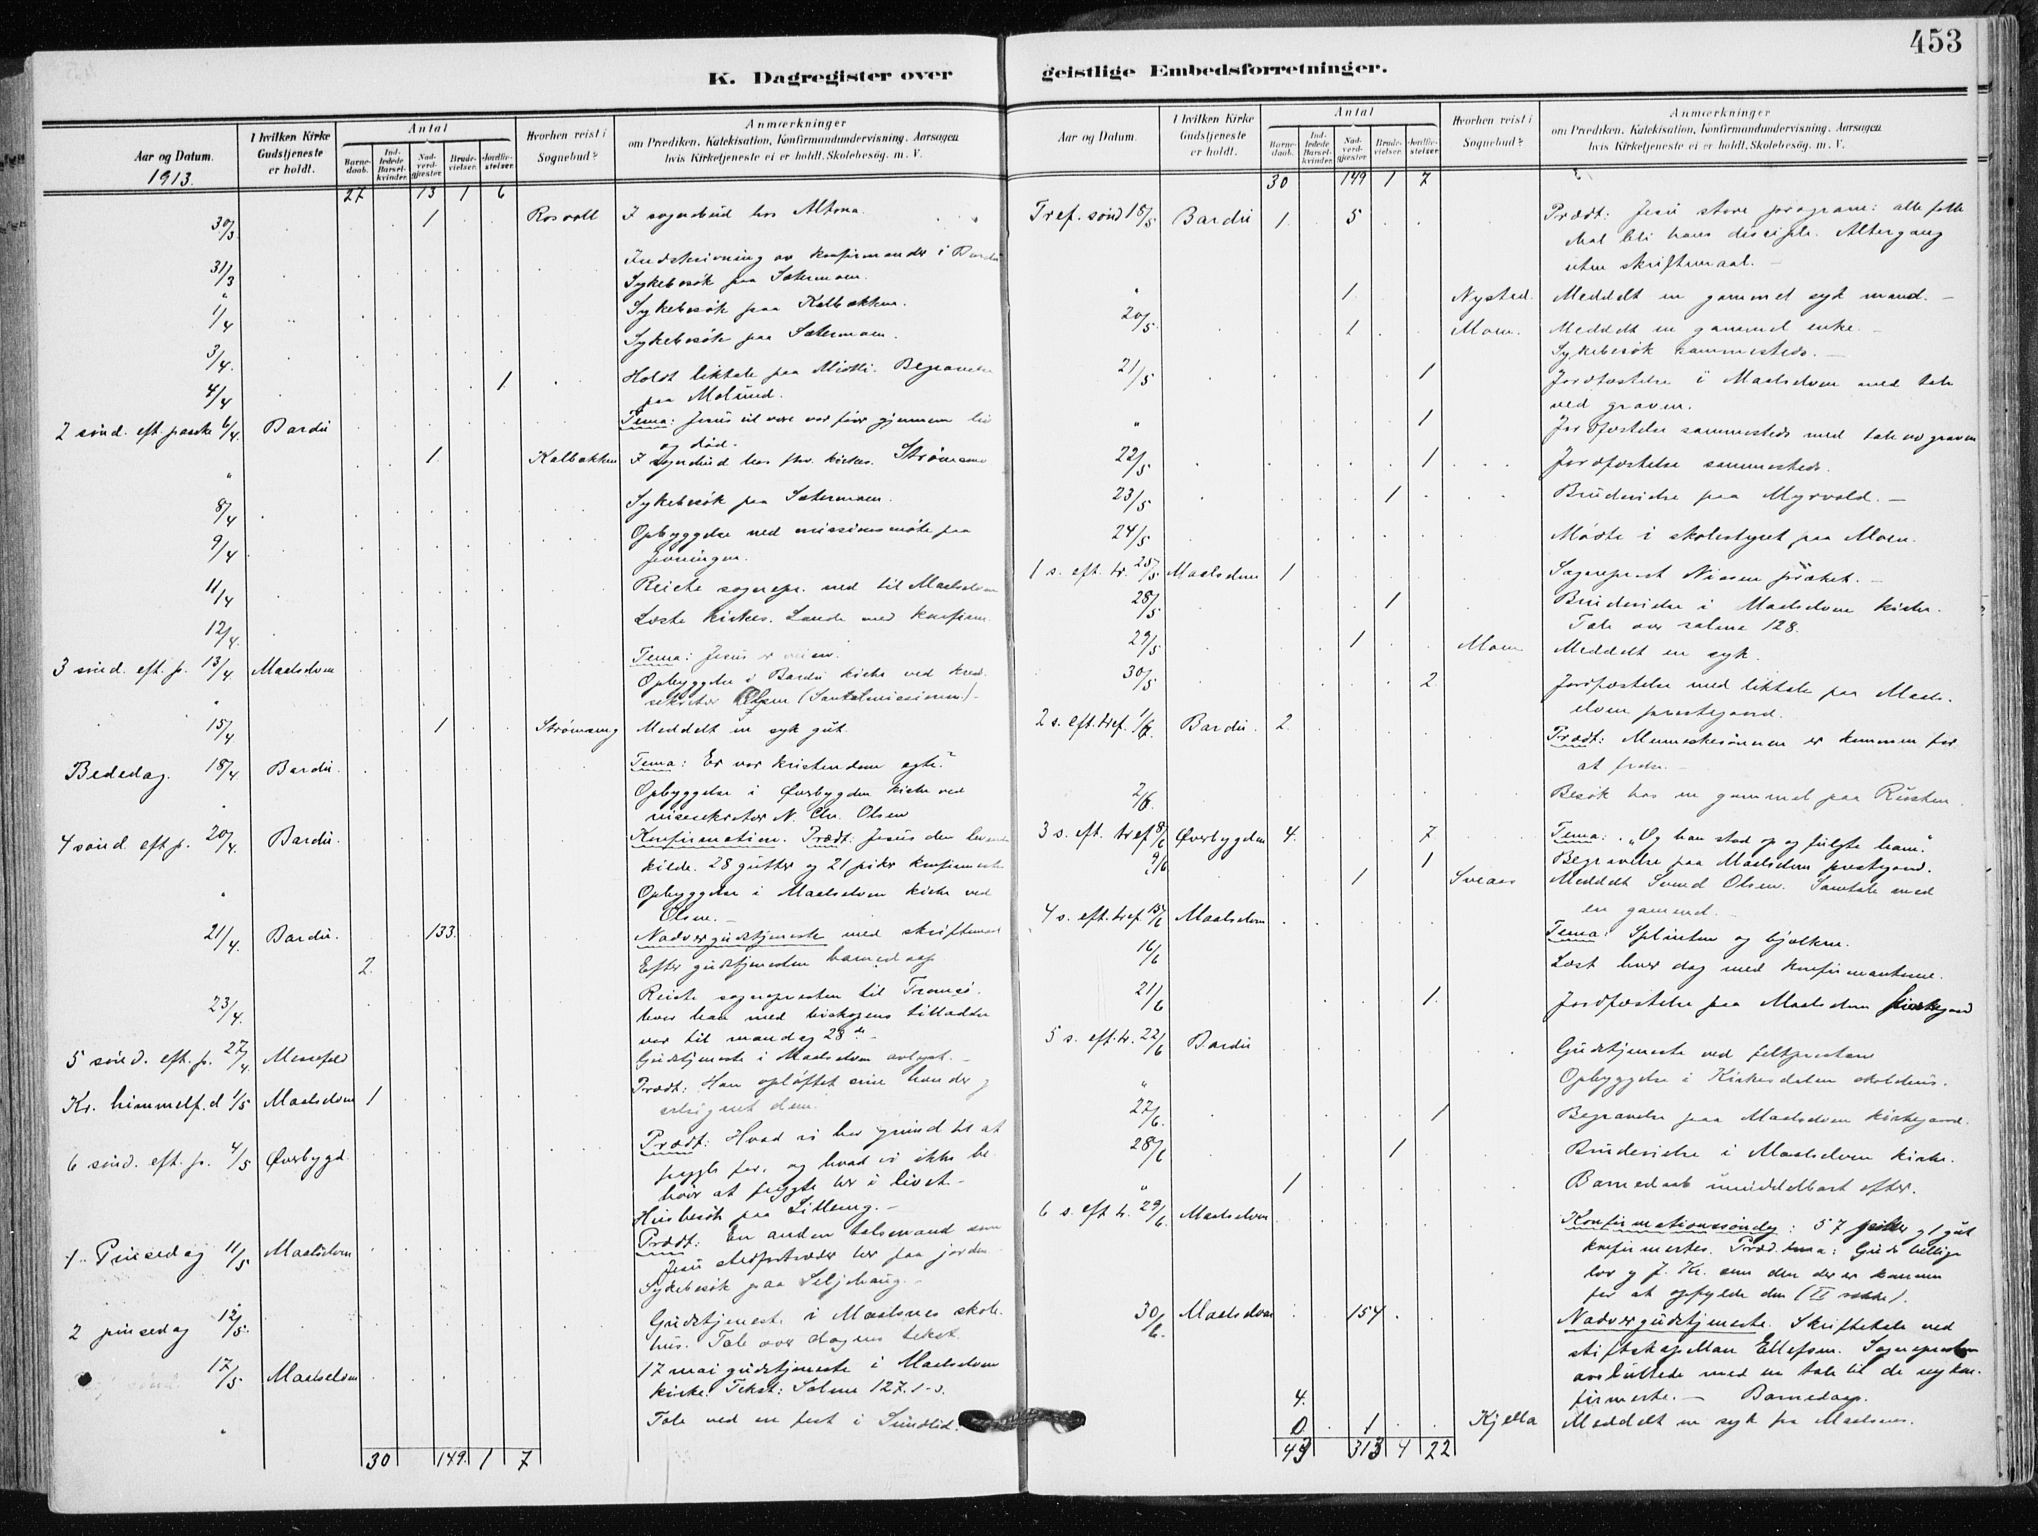 453
K. Dagregister over geistlige Embedsforretninger.
Aar og Datum.
1913.
I hvilken Kirke Gudstjeneste er holdt.
Antal
Barne-daab.
Ind-ledede Barsel-kvinder.
Nad-verd-gjæster
Brude-vielser.
Jordfæ-stelser.
Hvorhen reist i Sognebud?
Anmærkninger
om Prædiken, Katekisation, Konfirmandundervisning, Aarsagen
hvis Kirketjeneste ei er holdt. Skolebesøg. m. V.
27 13 1 6
30/3 1 Rosvoll I sognebud hos Altona.
31/3 Indskrivning av konfirmander i Bardu
" Sykebesök paa Sætermoen.
1/4 Sykebesök paa Kalbækken.
3/4 Sykebesök paa Sætermoen.
4/4 1 Holdt liktale paa Miotli. Begravelse
paa Molund.
2 sønd. eft. paaske 6/4 Bardu Tema: Jesus vil være vor gjennem liv
og död.
" 1 Kalbækken I sognebud hos fhv. kirkes. Strømseng
8/4 Sykebesök paa Sætermoen.
9/4 Opbyggelse ved missionsmöte paa
11/4 Reiste sognepr. ned til Maalselven
12/4 Læste kirkes. Lande med konfirm.
3 sönd. eft. p. 13/4 Maalselven Tema: Jesus er veien.
" Opbyggelse i Bardu kirke ved kred.
sekretær Olsen (Santalmissionen) -
15/4 1 Strømseng Meddelt en syk gut.
Bededag. 18/4 Bardu. Tema: Er vor kristendom egte?
" Opbyggelse i Øverbygden kirke ved
N. Chr. Olsen
4 sönd eft p. 20/4. Bardu. Konfirmation. Prædt: Jesus den levende
kilde. 28 gutter og 21 piker konfirmerte
" Opbyggelse i Maalselven kirke ved
Olsen. -
21/4. Bardu. 133. Nadvergudstjeneste med skriftemaal
2. Efter gudstjenesten barnedaap
23/4. Reiste sognepresten til Tromsö.
hvor han med biskopens tilladelse
var til mandag 28de -
5 sönd. eft. p. 27/4. Messefald Gudstjeneste i Maalselven avlyst. -
Kr. himmelf. d 1/5 Maalselven 1 Prædt: Han oplöftet sine hænder og
velsignet dem.
6 sönd. eft. p. 4/5 Øverbygd. Prædt: Hvad vi har grund til at
frygte for, og hvad vi ikke be-
höver at frygte her i livet. -
Husbesök paa -
1. Pinsedag 11/5 Maalselven Prædt: En anden talsmand som
Jesu stedfortræder her paa jorden
Sykebesök paa Seljehaug. -
2 pinsedag 12/5. Gudstjeneste i Maalsnes skole-
hus. Tale over dagens tekst.
17/5 Maalselven 17 mai gudstjeneste i Maalselven
kirke. Tekst: Salme 127. 1-3.
" Tale ved en fest i Sundlid.
30 149. 1 7
Aar og Datum.
I hvilken Kirke Gudstjeneste er holdt.
Antal
Barne-daab.
Ind-ledede Barsel-kvinder.
Nad-verd-gjæster
Brude-vielser.
Jordfæ-stelser.
Hvorhen reist i Sognebud?
Anmærkninger
om Prædiken, Katekisation, Konfirmandundervisning, Aarsagen
hvis Kirketjeneste ei er holdt. Skolebesøg. m. V.
30 149 1 7
Tref. sönd 18/5 Bardu 1. 5 Prædt: Jesu store program: alle folk
skal bli hans disciple. Altergang
uten skriftemaal. -
" 1 Nystad. Meddelt en gammel syk mand. -
20/5. 1 Moen. Meddelt en gammel enke. -
Sykebesök sammesteds. -
21/5 1 Jordfæstelse i Maalselven med tale
ved graven.
" 1 Jordfæstelse sammesteds med tale ved graven
22/5 1 Jordfæstelse sammesteds.
23/5 1 Brudevielse paa Myrvold. -
24/5 Möte i skolestyret paa Moen.
1 s. eft. tr. 25/5. Maalselven 1 Sogneprest Nissen præket. -
28/5 1 Brudevielse i Maalselven kirke.
Tale over salme 128.
29/5 1 Moen Meddelt en syk.
30/5. 2 Jordfæstelse med liktale paa Maals-
elven prestegaard.
2 s. eft. tref. 1/6. Bardu. 2. Prædt: Menneskesönnen er kommen for
at frelse. -
2/6. Besök hos en gammel paa Rusten.
3 s. eft. tref 8/6 Øverbygden 4. 7 Tema: "Og han stod op og fulgte ham."
9/6 1 Begravelse paa Maalselven prestegaard.
1 Sveaas Meddelt Svend Olsen. Samtale med
en gammel. -
4 s. eft. tref. 15/6 Maalselven Tema: Splinten og bjelken.
16/6 Læst hver dag med konfirmanterne.
21/6 1. Jordfæstelse paa Maalselven kirkegaard
5 s. eft. tr. 22/6 Bardu Gudstjeneste ved feltpresten
" Opbyggelse i Kirkesdalen skolehus.
27/6. 1 Begravelse paa Maalselven kirkegaard.
28/6 1 Brudevielse i Maalselven kirke.
" 1 Barnedaab umiddelbart efter.
6 s. eft tr. 29/6. Maalselven Konfirmationssöndag: 57 piker og 1 gut
konfirmertes. Præd. tema: Guds hellige
lov og J. Kr. som den der er kommen
for at opfylde den (II række).
30/6. Maalselven 154 Nadvergudstjeneste. Skriftetale ved
stiftskapellan Ellefsen. Sognepresten
avsluttede med en tale til de nykon-
4. firmerte. - Barnedaap.
0 1 Kjella Meddelt en syk paa Maalsnes.
43 313 4 22